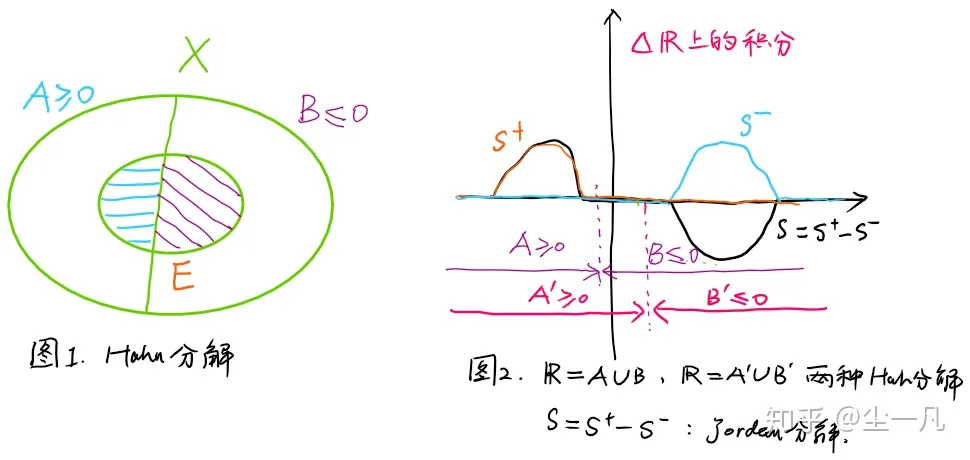 X
A≥0
B≤0
E
图1. Hahn分解
△ ℝ上的积分
S⁺
S⁻
S=S⁺-S⁻
A≥0
B≤0
A'≥0
B'≤0
图2. ℝ=A∪B、ℝ=A'∪B' 两种Hahn分解
S=S⁺-S⁻ : Jordan分解.
知乎 @尘一凡